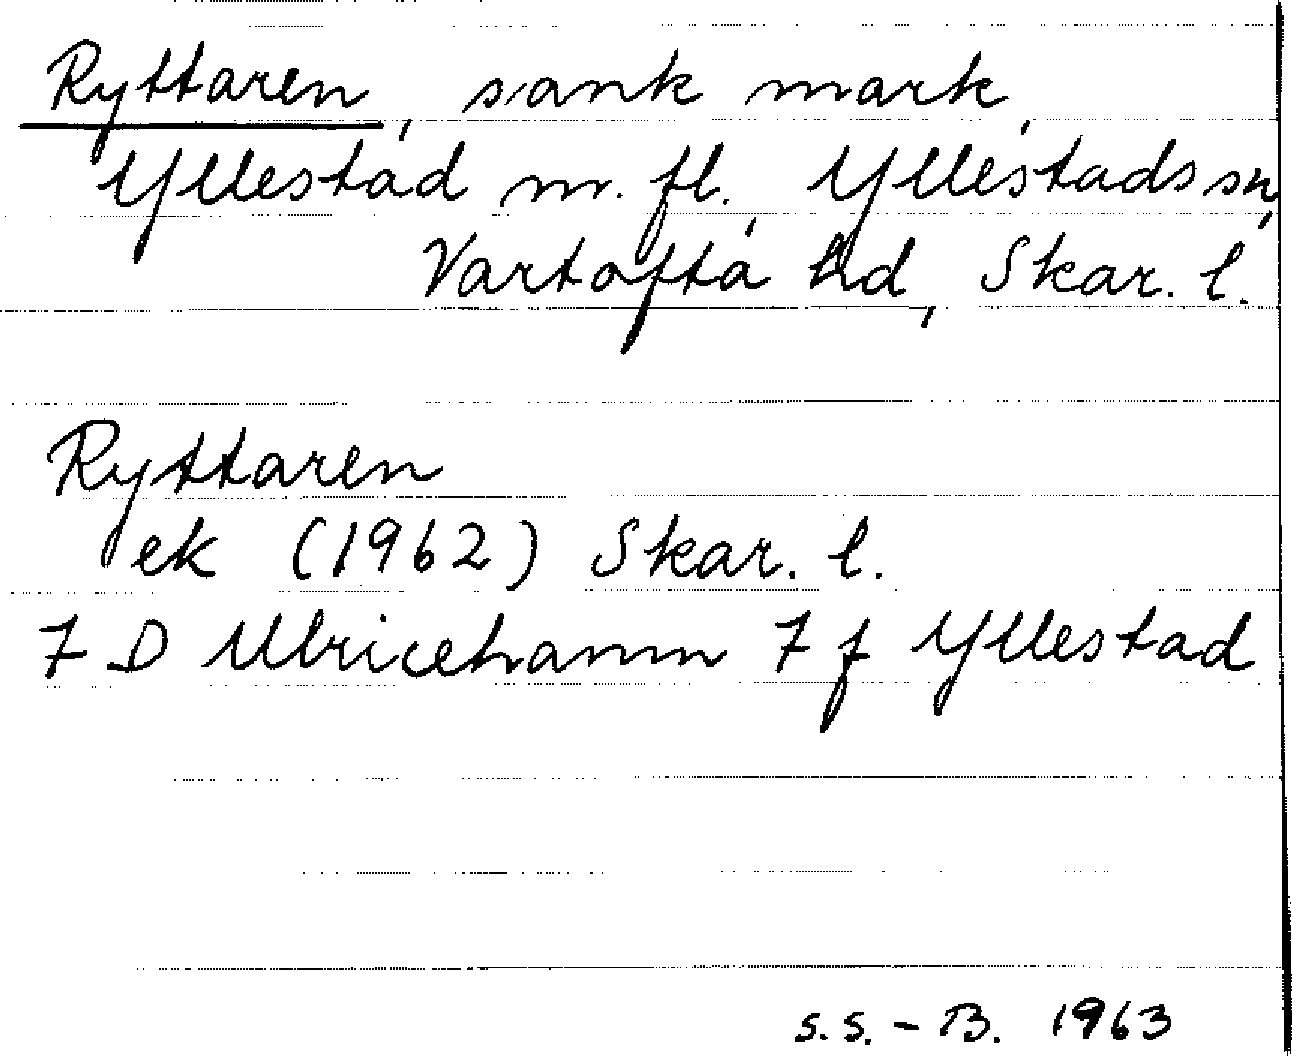 Ryttaren, sank mark,
Yllestad m. fl., Yllestads sn,
Vartofta hd, Skar. l.
Ryttaren
ek (1962) Skar. l.
7 D Ulricehamn 7 f Yllestad
S.S. - B. 1963